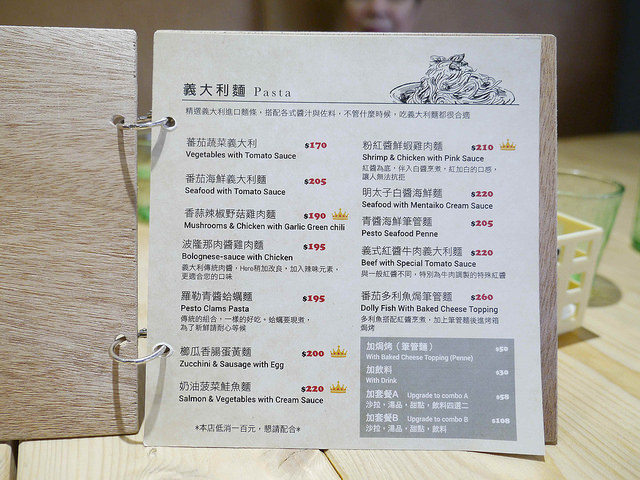 義大利麵 Pasta
精選義大利進口麵條，搭配各式醬汁與佐料，不管什麼時候，吃義大利麵都很合適
蕃茄蔬菜義大利 $170
Vegetables with Tomato Sauce
蕃茄海鮮義大利麵 $205
Seafood with Tomato Sauce
香蒜辣椒野菇雞肉麵 $190
Mushrooms & Chicken with Garlic Green chili
波隆那肉醬雞肉麵 $195
Bolognese-sauce with Chicken
義大利傳統肉醬，Hero稍加改良，加入辣味元素，
更適合您的口味
羅勒青醬蛤蠣麵 $195
Pesto Clams Pasta
傳統的組合，一樣的好吃。蛤蠣要現煮，
為了新鮮請耐心等候
櫛瓜香腸蛋黃麵 $200
Zucchini & Sausage with Egg
奶油菠菜鮭魚麵 $220
Salmon & Vegetables with Cream Sauce
*本店低消一百元，懇請配合*
粉紅醬鮮蝦雞肉麵 $210
Shrimp & Chicken with Pink Sauce
紅醬為底，伴入白醬烹煮，紅加白的口感，
讓人無法抗拒
明太子白醬海鮮麵 $220
Seafood with Mentaiko Cream Sauce
青醬海鮮筆管麵 $205
Pesto Seafood Penne
義式紅醬牛肉義大利麵 $220
Beef with Special Tomato Sauce
與一般紅醬不同，特別為牛肉調製的特殊紅醬
蕃茄多利魚焗筆管麵 $260
Dolly Fish With Baked Cheese Topping
多利魚搭配紅醬烹煮，加上筆管麵後進烤箱
焗烤
加焗烤（筆管麵） $50
With Baked Cheese Topping (Penne)
加飲料 $30
With Drink
加套餐A Upgrade to combo A $58
沙拉，湯品，甜點，飲料四選二
加套餐B Upgrade to combo B $108
沙拉，湯品，甜點，飲料